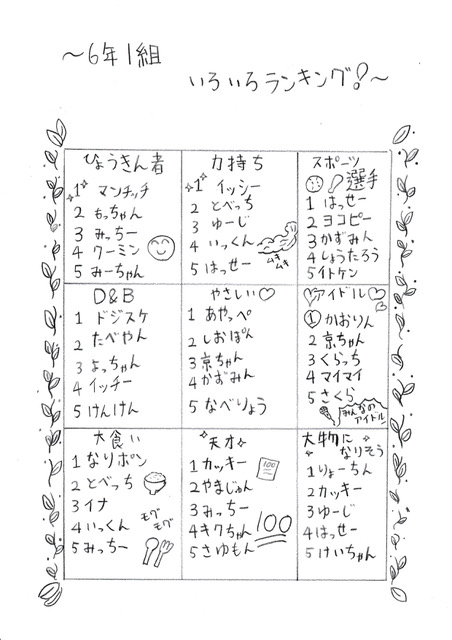 〜6年1組
いろいろランキング!〜
ひょうきん者
1 マンチッチ
2 もっちゃん
3 みっちー
4 ワーミン
5 みーちゃん
力持ち
1 イッシー
2 とべっち
3 ゆーじ
4 いっくん
5 はっせー
ムキ
ムキ
スポーツ
選手
1 はっせー
2 ヨコピー
3 かずみん
4 しょうたろう
5 イトケン
D&B
1 ドジスケ
2 たべやん
3 よっちゃん
4 イッチー
5 けんけん
やさしい♡
1 あやっぺ
2 しおぽん
3 京ちゃん
4 かずみん
5 なべりょう
アイドル
1 かおりん
2 京ちゃん
3 くらっち
4 マイマイ
5 さくら
みんなの
アイドル
大食い
1 なりポン
2 とべっち
3 イナ
4 いっくん
5 みっちー
モグ
モグ
天才
1 カッキー
2 やまじゅん
3 みっちー
4 キクちゃん
5 さゆもん
100
100
大物に
なりそう
1 りょーちん
2 カッキー
3 ゆーじ
4 はっせー
5 けいちゃん